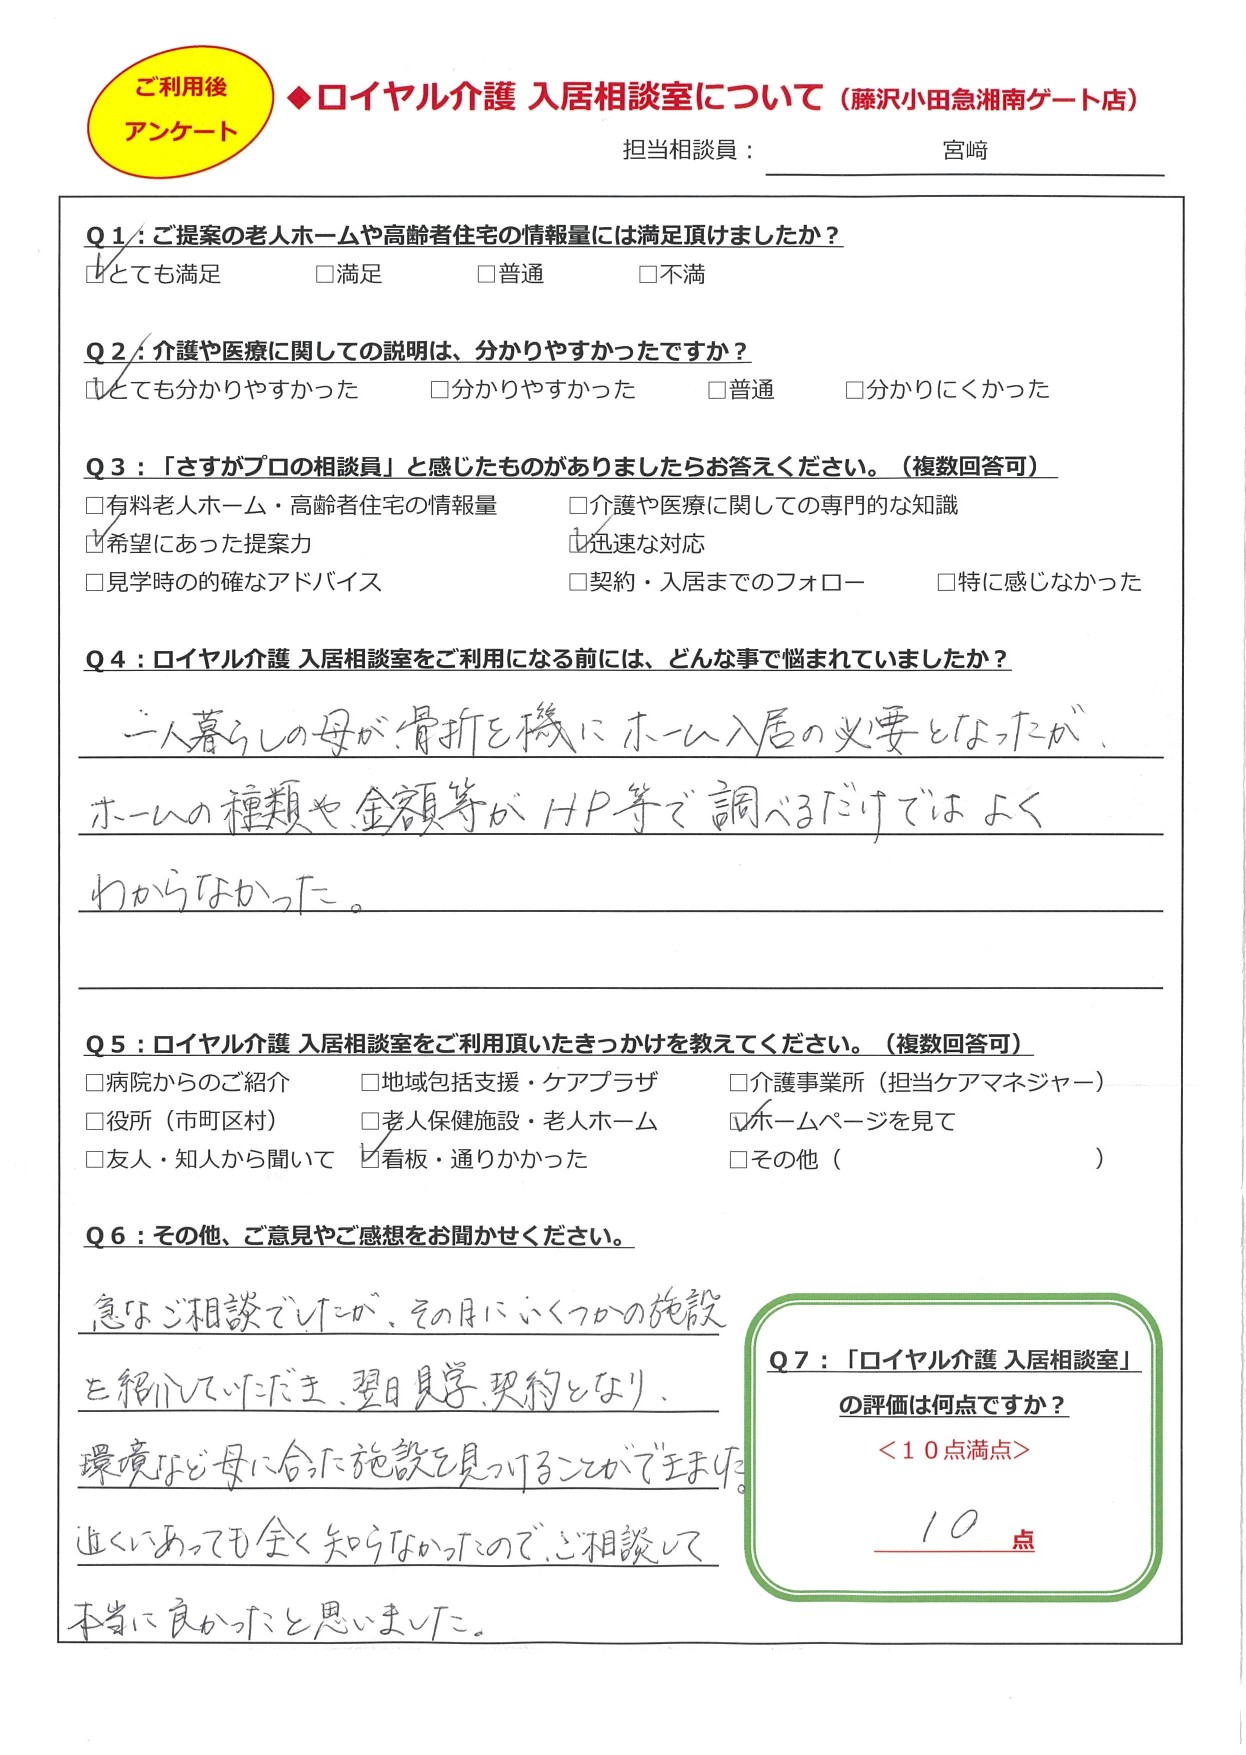 ご利用後
アンケート
◆ロイヤル介護 入居相談室について（藤沢小田急湘南ゲート店）
担当相談員： 宮﨑
Q１：ご提案の老人ホームや高齢者住宅の情報量には満足頂けましたか？
☑とても満足 □満足 □普通 □不満
Q２：介護や医療に関しての説明は、分かりやすかったですか？
☑とても分かりやすかった □分かりやすかった □普通 □分かりにくかった
Q３：「さすがプロの相談員」と感じたものがありましたらお答えください。（複数回答可）
□有料老人ホーム・高齢者住宅の情報量 □介護や医療に関しての専門的な知識
☑希望にあった提案力 ☑迅速な対応
□見学時の的確なアドバイス □契約・入居までのフォロー □特に感じなかった
Q４：ロイヤル介護 入居相談室をご利用になる前には、どんな事で悩まれていましたか？
一人暮らしの母が、骨折を機にホーム入居の必要となったが、
ホームの種類や、金額等がHP等で調べるだけではよく
わからなかった。
Q５：ロイヤル介護 入居相談室をご利用頂いたきっかけを教えてください。（複数回答可）
□病院からのご紹介 □地域包括支援・ケアプラザ □介護事業所（担当ケアマネジャー）
□役所（市町区村） □老人保健施設・老人ホーム ☑ホームページを見て
□友人・知人から聞いて ☑看板・通りかかった □その他（ ）
Q６：その他、ご意見やご感想をお聞かせください。
急なご相談でしたが、その日にいくつかの施設
を紹介していただき、翌日見学、契約となり、
環境など母に合った施設を見つけることができました。
近くにあっても全く知らなかったので、ご相談して
本当に良かったと思いました。
Q７：「ロイヤル介護 入居相談室」
の評価は何点ですか？
＜１０点満点＞
10 点